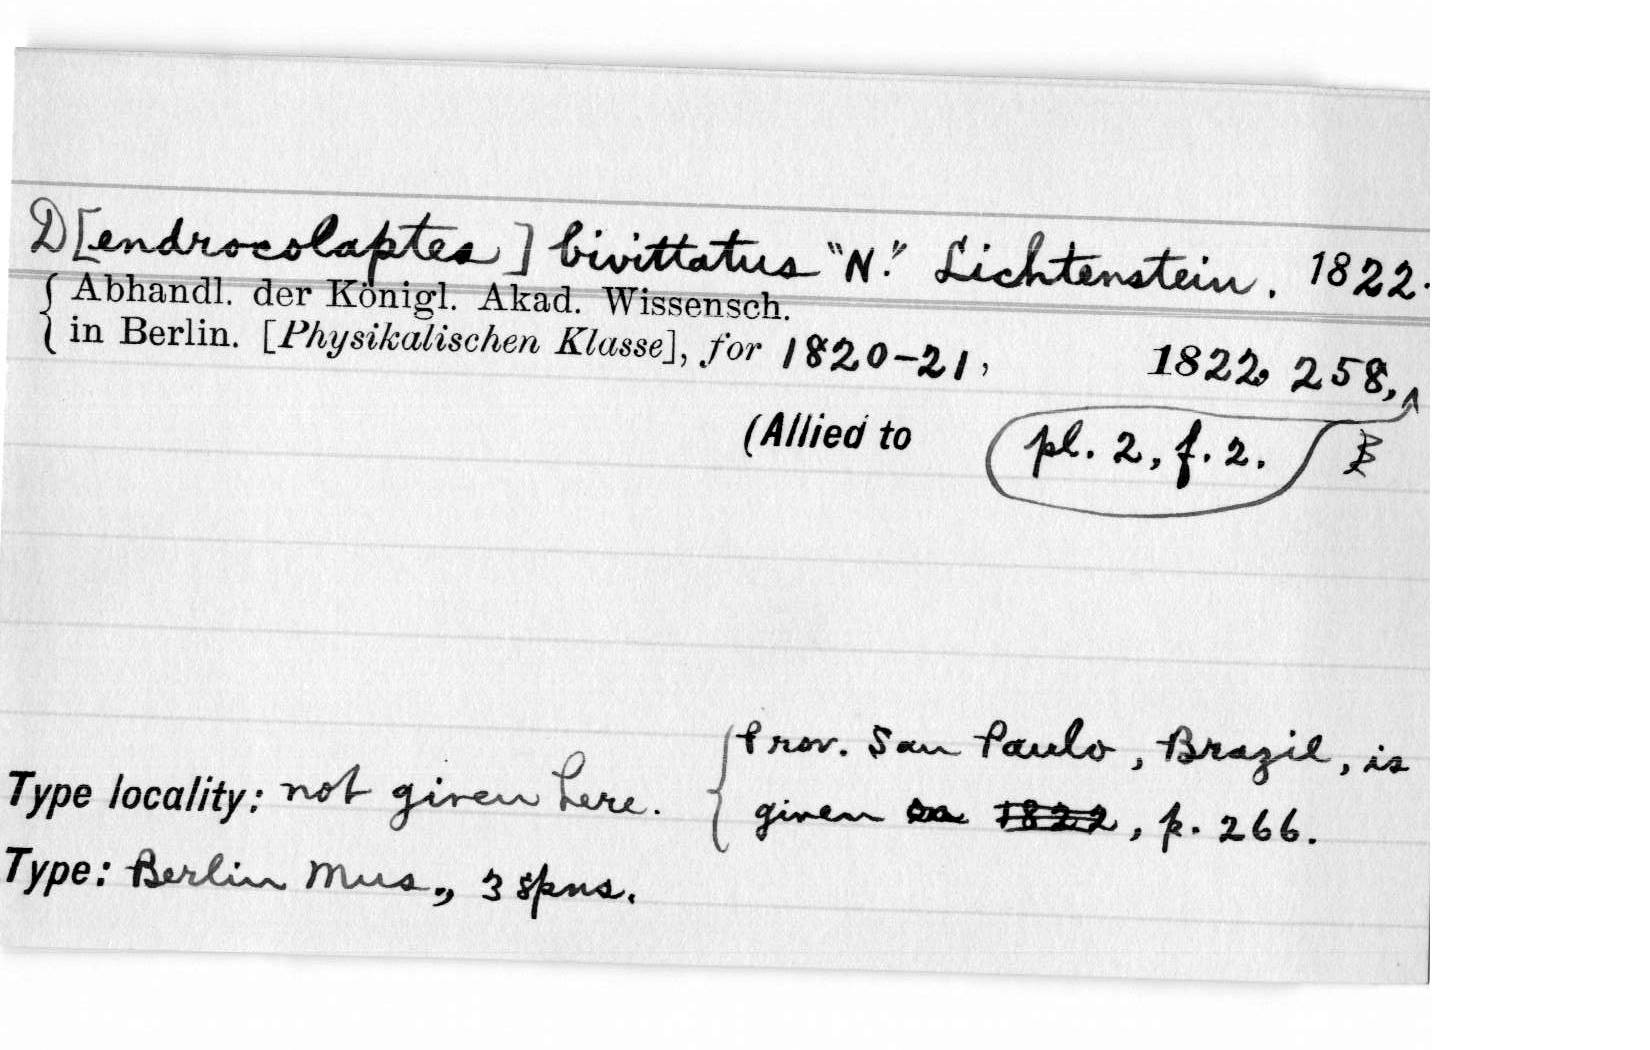 D[endrocolaptes] bivittatus "N." Lichtenstein. 1822.
Abhandl. der Königl. Akad. Wissensch.
in Berlin. [Physikalischen Klasse], for 1820-21, 1822, 258,
(Allied to pl. 2, f. 2.
Prov. San Paulo, Brazil, is
Type locality: not given here.
given 1822, p. 266.
Type: Berlin Mus., 3 spns.